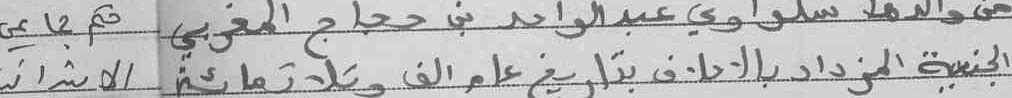 من والدها سلواوي عبد الواحد بن حجاج المغربي
الجنسية المزداد بالاحلاف بتاريخ عام الف وثلاثمائة